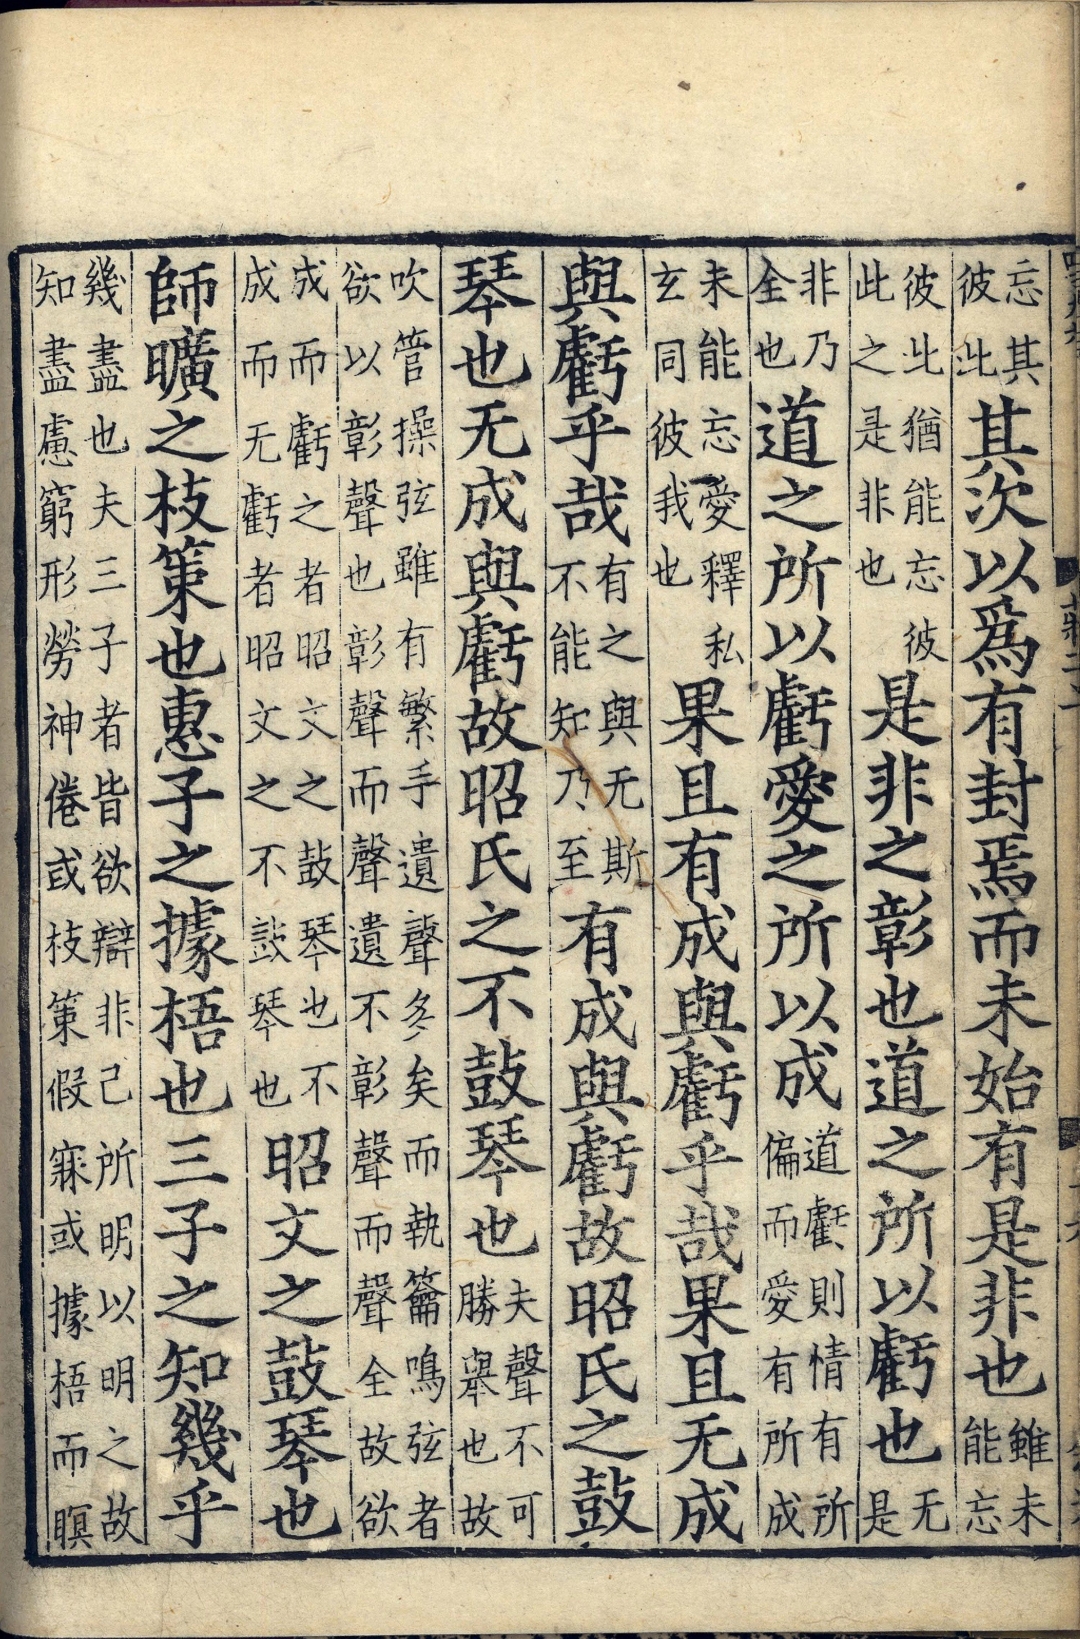 忘其彼此其次以爲有封焉而未始有是非也雖未能忘
彼此猶能忘彼此之是非也是非之彰也道之所以虧也无是
非乃全也道之所以虧愛之所以成道虧則情有所偏而愛有所成
未能忘愛釋私玄同彼我也果且有成與虧乎哉果且无成
與虧乎哉有之與无斯不能知乃至有成與虧故昭氏之鼓
琴也无成與虧故昭氏之不鼓琴也夫聲不可勝舉也故
吹管操弦雖有繁手遺聲多矣而執籥鳴弦者
欲以彰聲也彰聲而聲遺不彰聲而聲全故欲
成而虧之者昭文之鼓琴也不成而无虧者昭文之不鼓琴也昭文之鼓琴也
師曠之枝策也惠子之據梧也三子之知幾乎
幾盡也夫三子者皆欲辯非己所明以明之故
知盡慮窮形勞神倦或枝策假寐或據梧而瞑